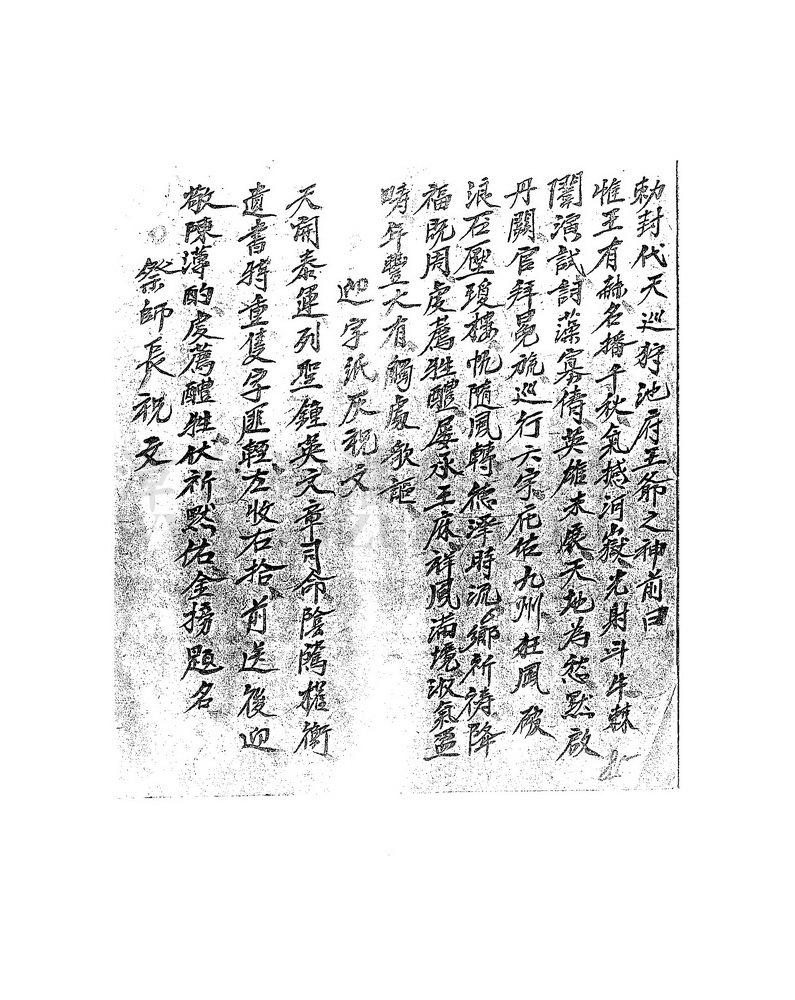 勅封代天巡狩池府王爺之神前曰
惟王有赫名播千秋氣撼河嶽光射斗牛棘
闈演試詞藻寡儔英雄未展天地為愁默啟
丹闕官拜冕旒巡行六字庇佑九州狂風破
浪石壓瓊樓帆隨風轉德澤時流鄉祈禱降
福既周虔薦牲醴屢承王庥祥風滿境淑氣盈
疇年豐大有觸處歌謳
迎字紙灰祝文
天開泰運列聖鍾英文章司命陰隲權衡
遺書特重隻字匪輕左收右拾前送後迎
敬陳薄酌虔薦醴牲伏祈默佑金榜題名
祭師長祝文